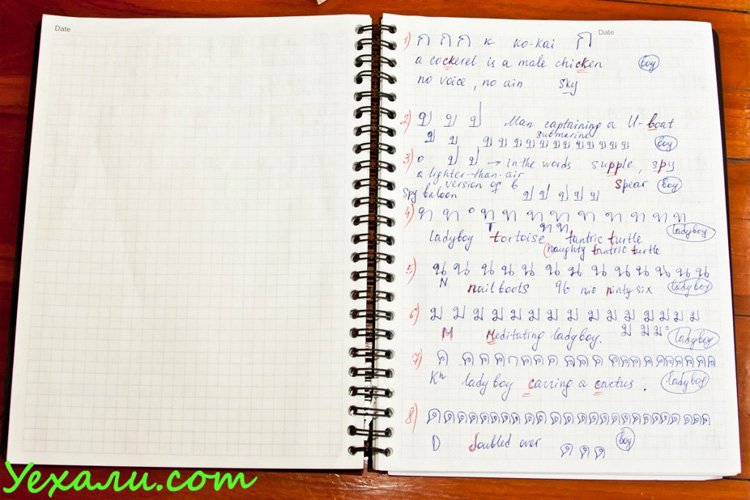 Date
Date
1) ก ก ก k ko-kai ก
a cockerel is a male chicken boy
no voice, no air sky
2) บ บ ป Man captaining a U-boat
submarine
บ บ บ บ บ บ บ บ บ บ บ บ บ boy
3) ป ป → in the words supple, spy
a lighter-than-air
version of b spear boy
Spy baloon ป ป ป ป ป
4) ท ท ท ท ท ท ท ท ท ท ท ladyboy
T ท ท
ladyboy tortoise tantric turtle
naughty tantric turtle
5) น น น น น น น น น น น น
N nail boots 96 not ninty six ladyboy
6) ม ม ม ม ม ม ม ม ม ม ม ม ม
M Meditating ladyboy. ม ม ม ladyboy
7) ค ค ค ค ค ค ค ค ค ค ค ค ค ค ค ค
Kh ladyboy carring a cactus. ladyboy
8) ด ด ด ด ด ด ด ด ด ด ด ด ด ด ด ด ด ด ด ด
D doubled over ด ด ด boy
Уехали.com